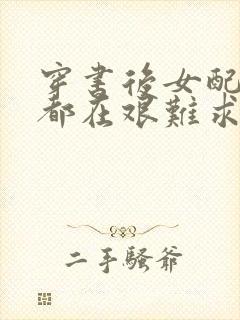 穿書後女配
都在艱難求
二手騷爺